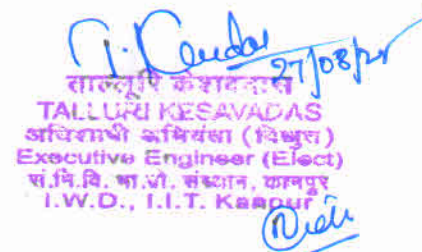 27/08/25
ताल्लूरि केशवदास
TALLURI KESAVADAS
अधिशाषी अभियंता (विद्युत)
Executive Engineer (Elect)
सं.नि.वि. भा.प्रौ. संस्थान, कानपुर
I.W.D., I.I.T. Kanpur